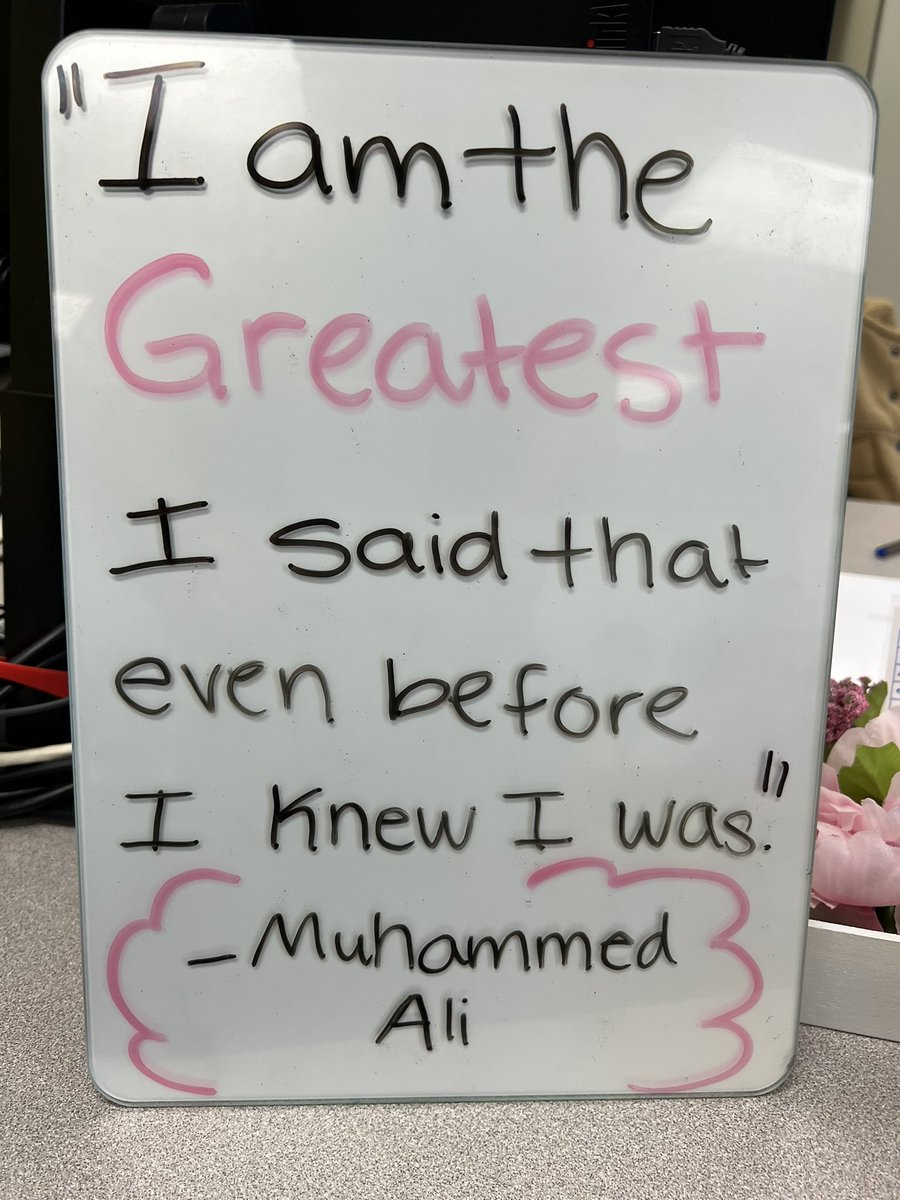 "I am the
Greatest
I said that
even before
I knew I was."
- Muhammed
Ali